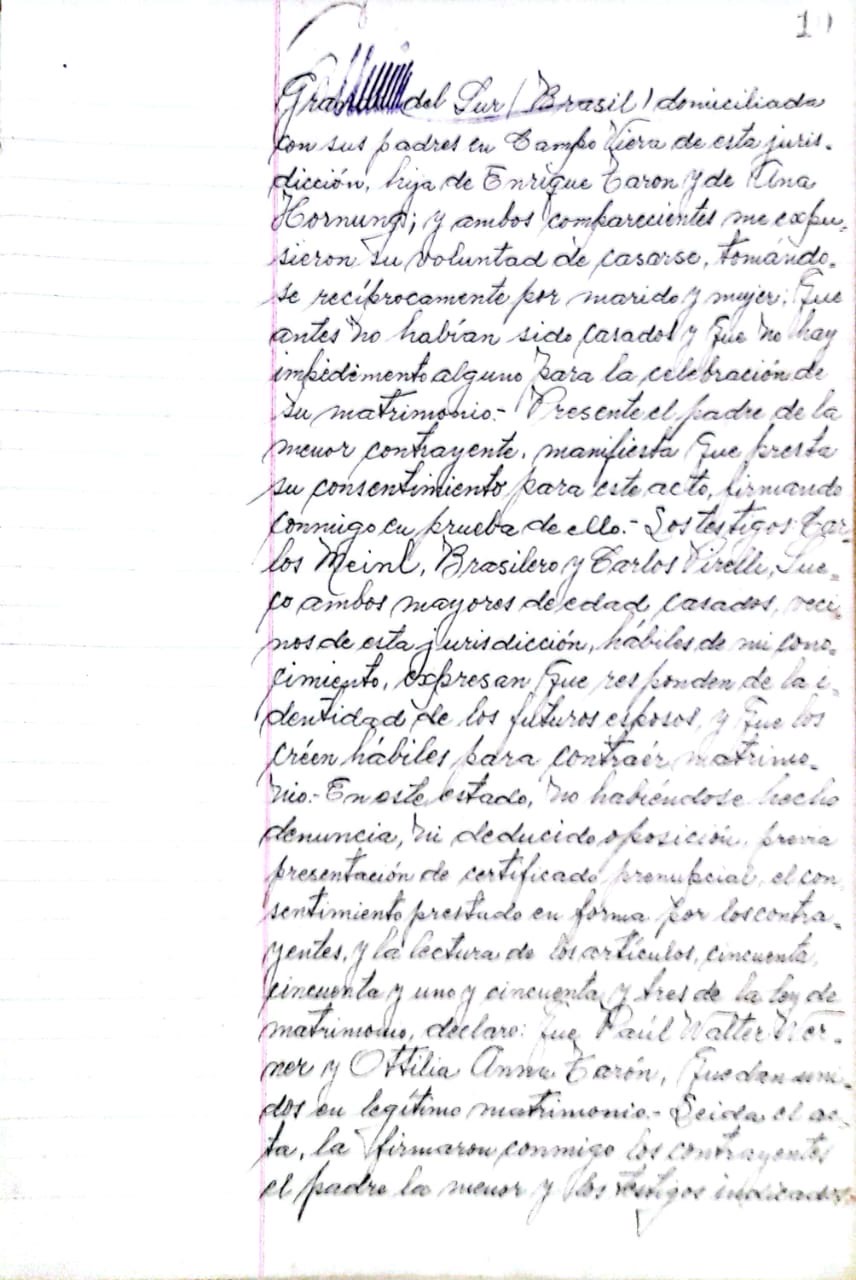 10
Gran del Sur (Brasil) domiciliada
con sus padres en Campo Viera de esta juris-
dicción, hija de Enrique Caron y de Ana
Hornung; y ambos comparecientes me expu-
sieron su voluntad de casarse, tomándo-
se recíprocamente por marido y mujer; Que
antes no habían sido casados y que no hay
impedimento alguno para la celebración de
su matrimonio.- Presente el padre de la
menor contrayente, manifiesta que presta
su consentimiento para este acto, firmando
conmigo en prueba de ello.- Los testigos Car-
los Meinl, Brasilero y Carlos Pirelli, Sue-
co ambos mayores de edad casados, veci-
nos de esta jurisdicción, hábiles de mi cono-
cimiento, expresan que responden de la i-
dentidad de los futuros esposos, y que los
créen hábiles para contraér matrimo-
nio.- En este estado, no habiéndose hecho
denuncia, ni deducido oposición, previa
presentación de certificado prenupcial, el con
sentimiento prestado en forma por los contra-
yentes, y la lectura de los artículos, cincuenta,
cincuenta y uno y cincuenta y tres de la ley de
matrimonio, declaro: Que Paúl Walter Wer-
ner y Ottilia Anna Carón, quedan uni-
dos en legítimo matrimonio.- Leida el ac-
ta, la firmaron conmigo los contrayentes
el padre la menor y los testigos indicados